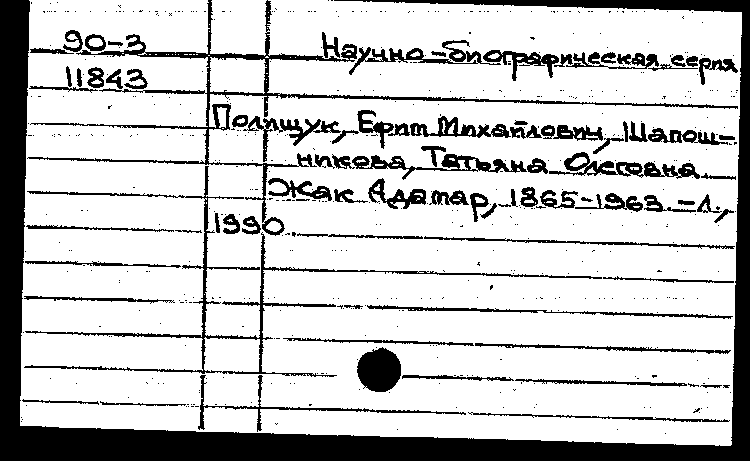 90-3 Научно-биографическая серия
11843
Полищук, Ефим Михайлович, Шапош-
никова, Татьяна Олеговна.
Жак Адамар, 1865-1963. -Л.,
1990